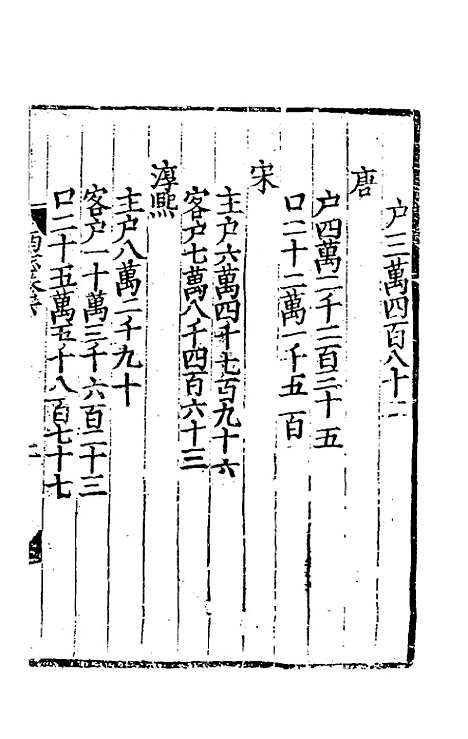 户三萬四百八十二
唐
户四萬二千二百三十五
口二十二萬一千五百
宋
主户六萬四千七百九十六
客户七萬八千四百六十三
淳熙
主户八萬二千九十
客户一十萬三千六百二十三
口二十五萬五千八百七十七